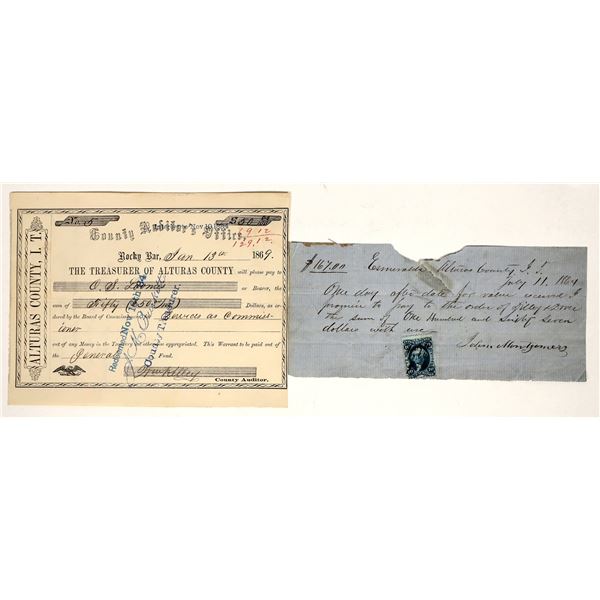 ALTURAS COUNTY, I. T.
No. 5
$50.00
County Auditor's Office,
69.12
129.12
Rocky Bar, Jan 13th 1869.
THE TREASURER OF ALTURAS COUNTY will please pay to
O. S. or Bearer, the
sum of Fifty (50 Dollars, as or-
dered by the Board of Commis Services as Commiss
ioner
out of any Money in the Trea otherwise appropriated. This Warrant to be paid out
of the General Fund.
County Auditor.
Co. Treasurer.
$167.00 Esmeralda Alturas County I. T.
July 11. 1864
One day after date for value received I
promise to pay to the order of
the sum of One Hundred and Sixty Seven
dollars with use
Edwin Montgomery